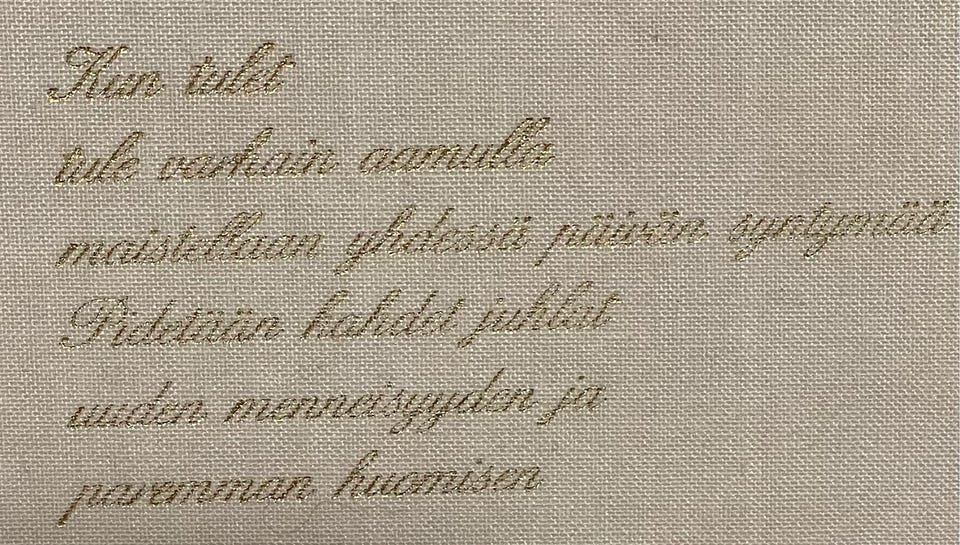 Kun tulet
tule varhain aamulla
maistellaan yhdessä päivän syntymää
Pidetään kahdet juhlat
uuden menneisyyden ja
paremman huomisen